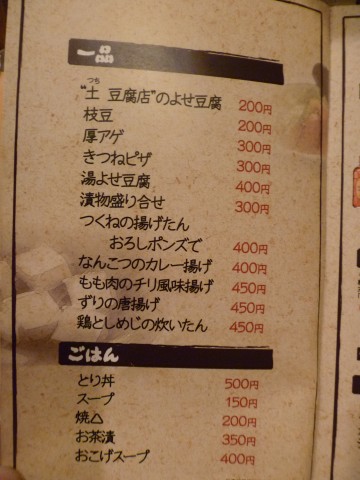 一品
つち
"土 豆腐店"のよせ豆腐 200円
枝豆 200円
厚アゲ 300円
きつねピザ 300円
湯よせ豆腐 400円
漬物盛り合せ 300円
つくねの揚げたん
おろしポンズで 400円
なんこつのカレー揚げ 400円
もも肉のチリ風味揚げ 450円
ずりの唐揚げ 450円
鶏としめじの炊いたん 450円
ごはん
とり丼 500円
スープ 150円
焼△ 200円
お茶漬 350円
おこげスープ 400円